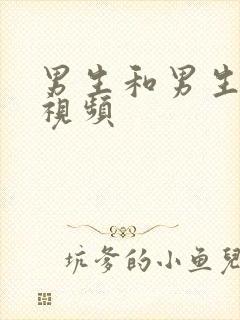 男生和男生
視頻
坑爹的小鱼兒